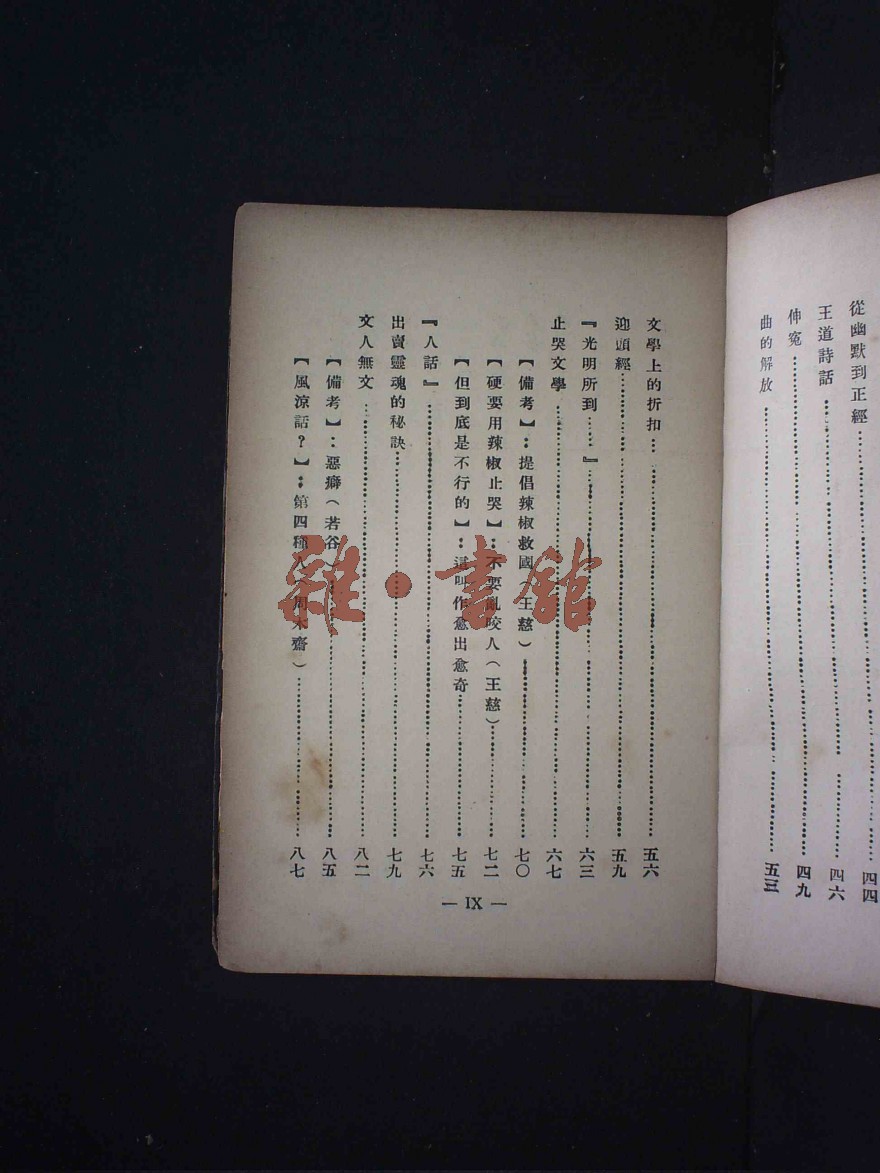 從幽默到正經……四四
王道詩話……四六
伸冤……四九
曲的解放……五三
文學上的折扣……五六
迎頭經……五九
『光明所到……』……六三
止哭文學……六七
【備考】：提倡辣椒救國（王慈）……七〇
【硬要用辣椒止哭】：不要亂咬人（王慈）……七二
【但到底是不行的】：這叫作愈出愈奇……七五
『人話』……七六
出賣靈魂的秘訣……七九
文人無文……八二
【備考】：惡癖（若谷）……八五
【風涼話？】：第四種人（周木齋）……八七
— IX —
雜·書館